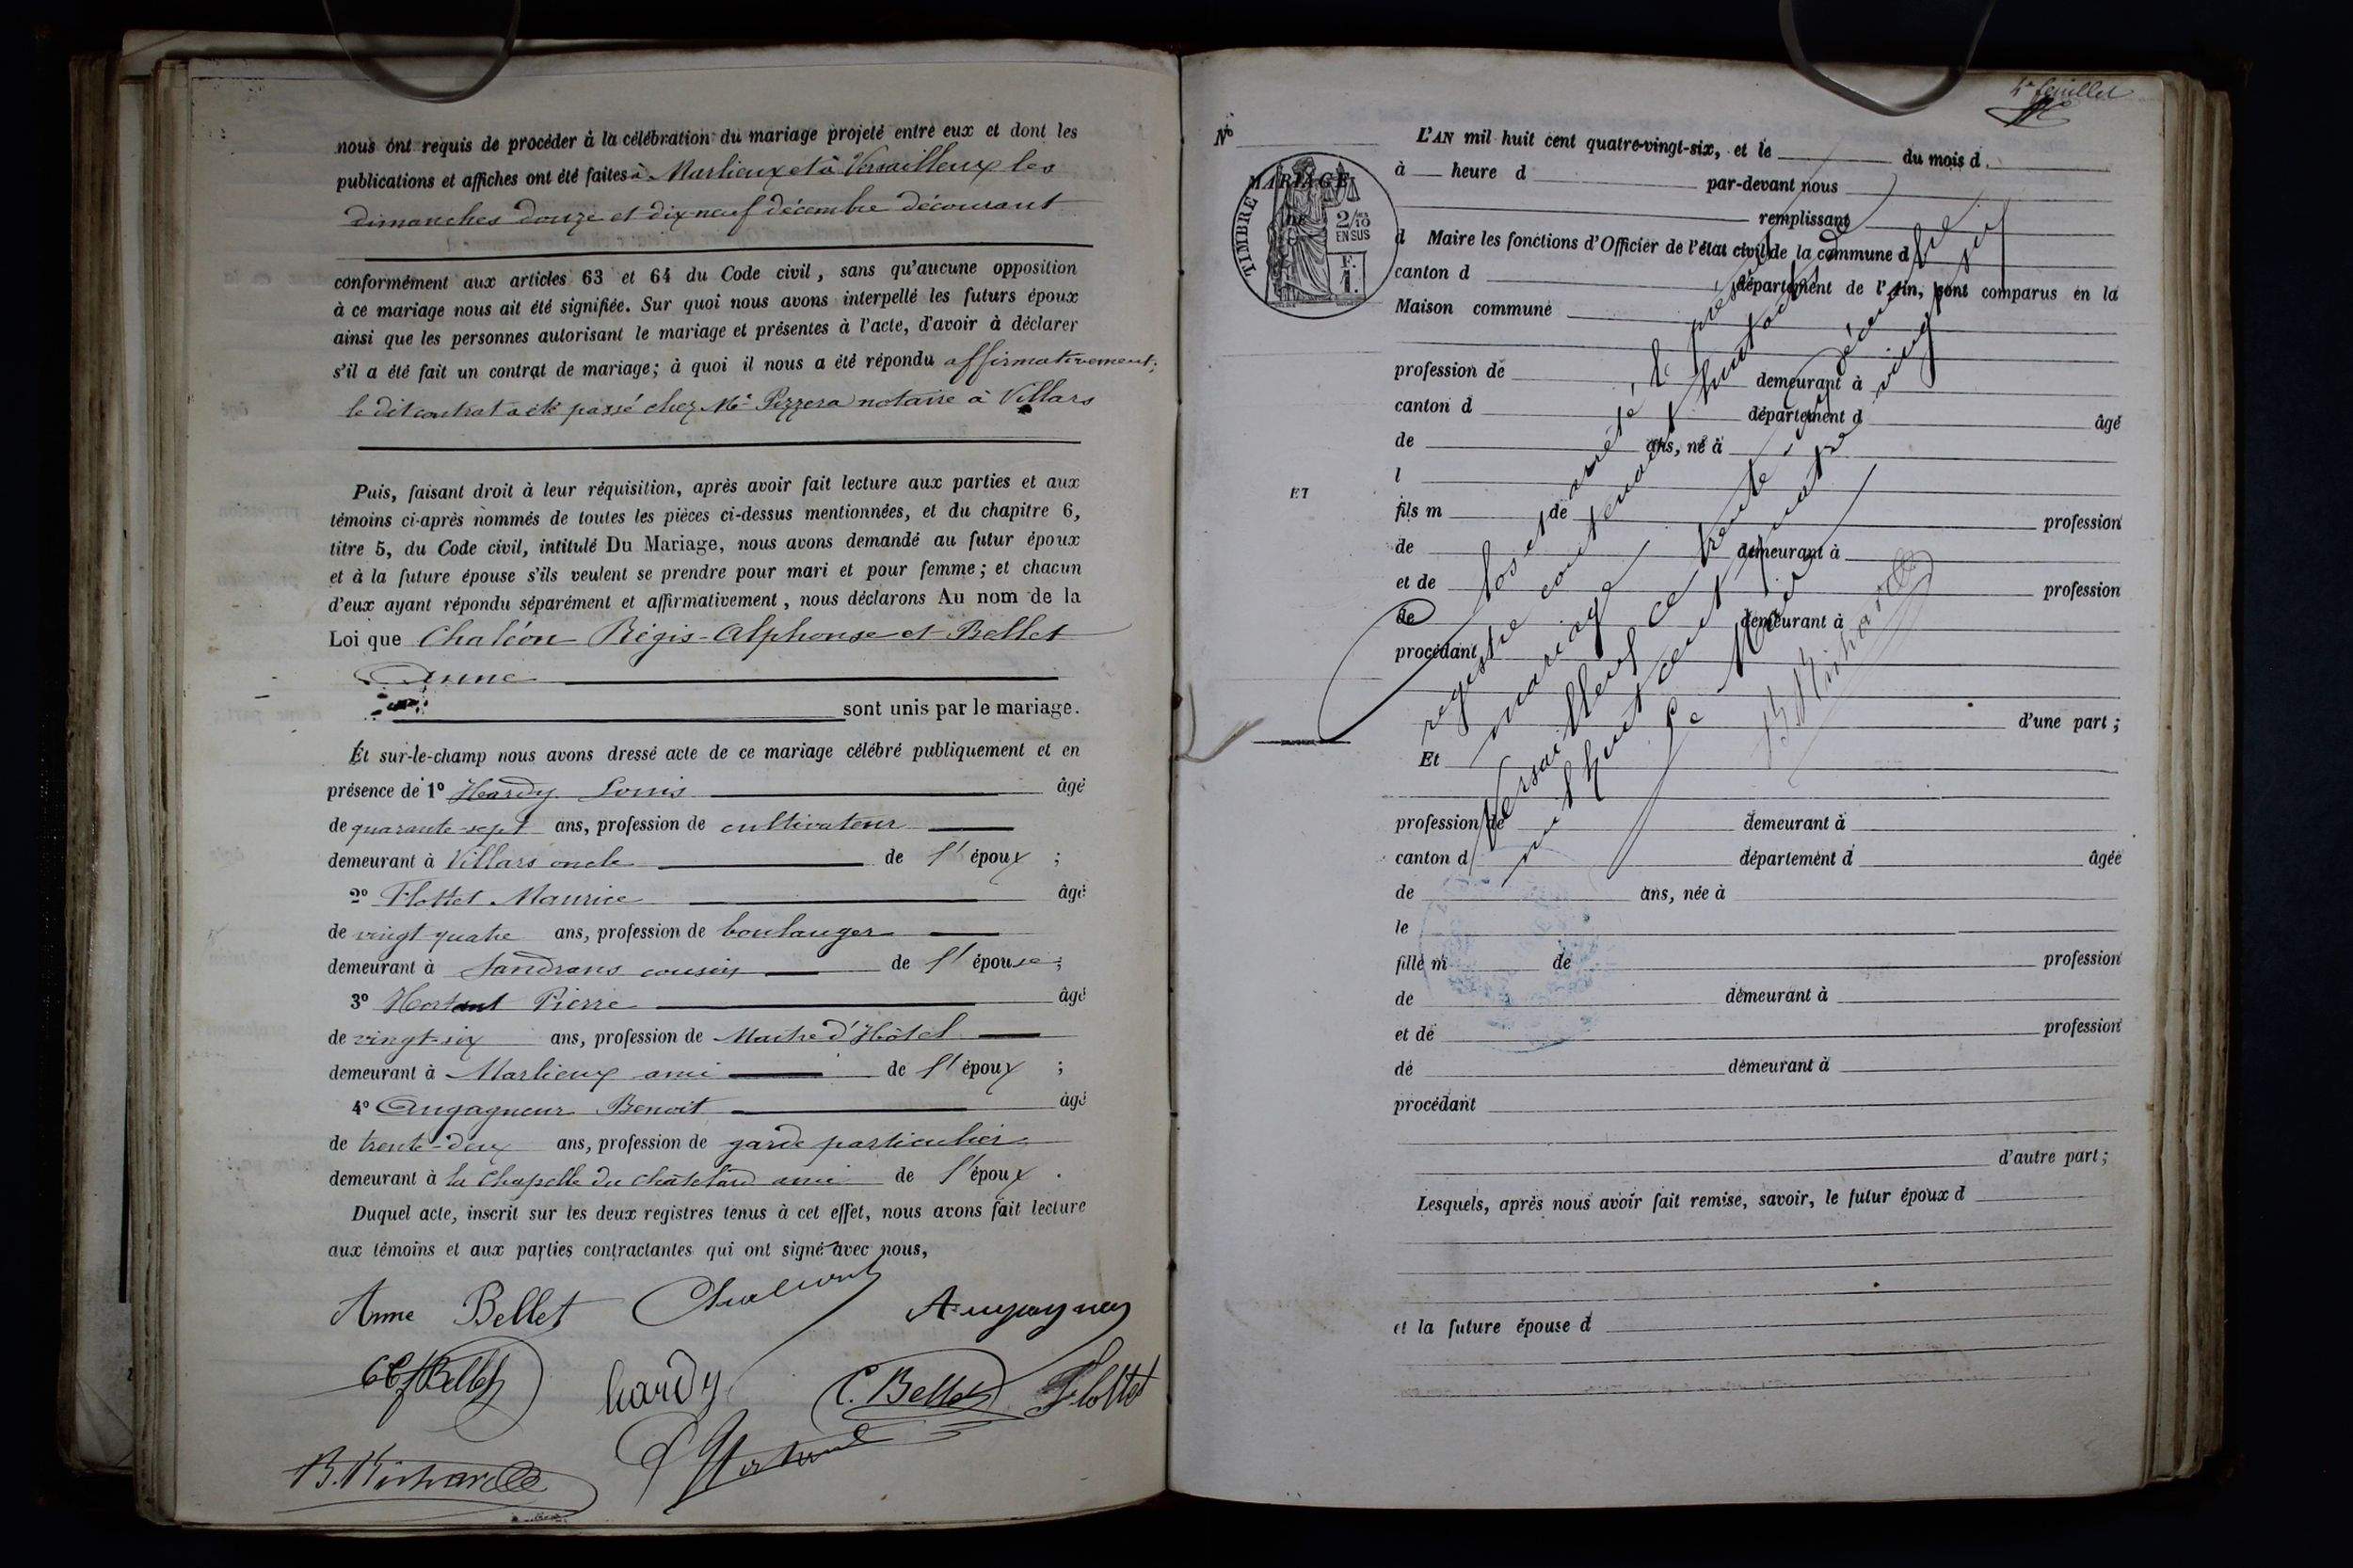 nous ont requis de procéder à la célébration du mariage projeté entre eux et dont les
publications et affiches ont été faites à Marlieux et à Versailleux les
dimanches douze et dix neuf décembre découvrant
conformément aux articles 63 et 64 du Code civil, sans qu'aucune opposition
à ce mariage nous ait été signifiée. Sur quoi nous avons interpellé les futurs époux
ainsi que les personnes autorisant le mariage et présentes à l'acte, d'avoir à déclarer
s'il a été fait un contrat de mariage; à quoi il nous a été répondu affirmativement;
le dit contrat a été passé chez Me Pizzera notaire à Villars
Puis, faisant droit à leur réquisition, après avoir fait lecture aux parties et aux
témoins ci-après nommés de toutes les pièces ci-dessus mentionnées, et du chapitre 6,
titre 5, du Code civil, intitulé Du Mariage, nous avons demandé au futur époux
et à la future épouse s'ils veulent se prendre pour mari et pour femme; et chacun
d'eux ayant répondu séparément et affirmativement, nous déclarons Au nom de la
Loi que Chaléon Régis-Alphonse et Bellet
Anne
sont unis par le mariage.
Et sur-le-champ nous avons dressé acte de ce mariage célébré publiquement et en
présence de 1° Hardy Louis âgé
de quarante-sept ans, profession de cultivateur
demeurant à Villars oncle de l'époux ;
2° Flottet Maurice âgé
de vingt quatre ans, profession de boulanger
demeurant à Sandrans cousin de l'épouse ;
3° Hortant Pierre âgé
de vingt-six ans, profession de Maitre d'Hôtel
demeurant à Marlieux ami de l'époux ;
4° Augagneur Benoit âgé
de trente-deux ans, profession de garde particulier
demeurant à la Chapelle du Châtelard ami de l'époux .
Duquel acte, inscrit sur les deux registres tenus à cet effet, nous avons fait lecture
aux témoins et aux parties contractantes qui ont signé avec nous,
Anne Bellet
Augagneur
Bellet hardy C. Bellet Flottet
4e feuillet
N°
L'AN mil huit cent quatre-vingt-six, et le du mois d
à heure d par-devant nous
remplissant
d Maire les fonctions d'Officier de l'état civil de la commune d
canton d département de l'Ain, sont comparus en la
Maison commune
MARIAGE
TIMBRE
2/10
EN SUS
F.
1.
profession de demeurant à
canton d département d âgé
de ans, né à
l
ET
fils m de profession
de demeurant à
et de profession
de demeurant à
procédant
d'une part ;
Et
profession de demeurant à
canton d département d âgée
de ans, née à
le
fille m de profession
de demeurant à
et de profession
de demeurant à
procédant
d'autre part ;
Lesquels, après nous avoir fait remise, savoir, le futur époux d
et la future épouse d
Clos et arrêté le présent
registre contenant huit actes de
mariage
Versailleux ce trente-un décembre
mil huit cent quatre vingt six
Le Maire